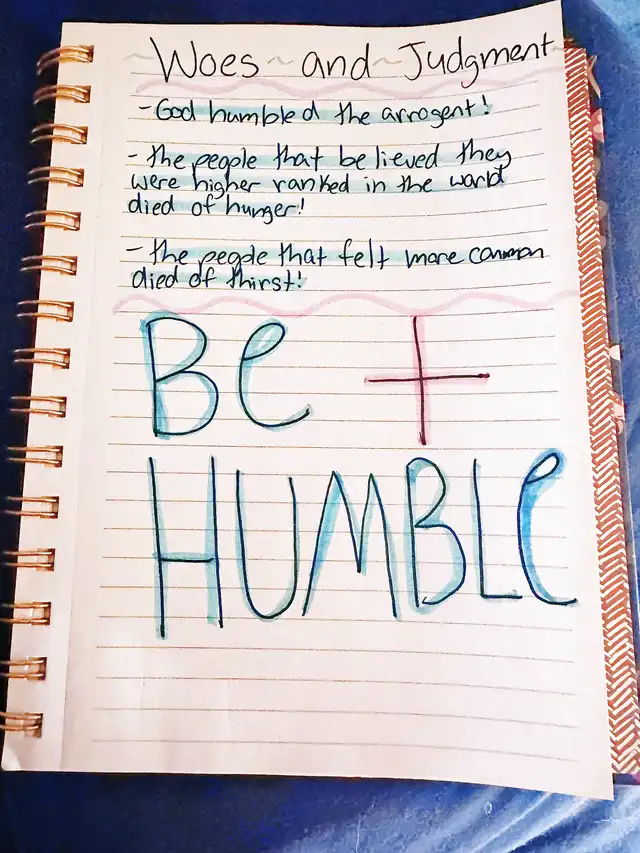 ~Woes~ and~ Judgment~
- God humbled the arrogent!
- the people that believed they
were higher ranked in the world
died of hunger!
- the people that felt more common
died of thirst!
Be
HUMBLE